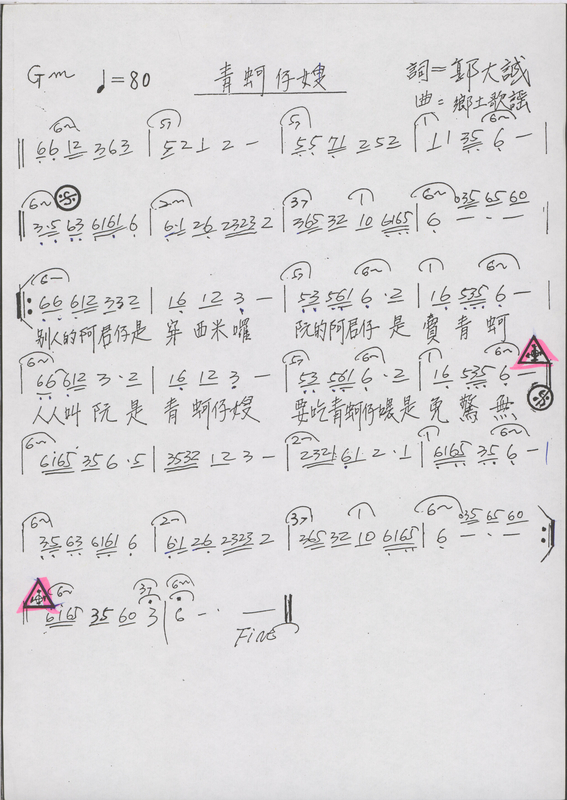 Gm ♩=80 青蚵仔嫂 詞=鄭大誠
曲=鄉土歌謠
6~ 5, 5, 1 6~
66 12 363 | 521 2 — | 55 71 252 | 11 35 6 — |
6~ 2~ 37 1 6~
3·5 63 6161 6 | 6·1 26 2323 2 | 365 32 10 6165 | 6 035 65 60
6~ 5, 6~ 1 6~
66 612 332 | 16 12 3 — | 53 561 6·2 | 16 535 6 — |
別人的阿君仔是 穿西米囉 阮的阿君仔是賣青蚵
6~ 5, 6~ 1 6~
66 612 3·2 | 16 12 3 | 53 561 6·2 | 16 535 6 —
人人叫阮是青蚵仔嫂 要吃青蚵仔嫂是免驚無
6~ 2~ 1 6~
6165 356·5 | 3532 12 3 — | 2321 61 2·1 | 6165 35 6 — |
6~ 2~ 37 1 6~
35 63 6161 6 | 61 26 2323 2 | 365 32 10 6165 | 6 035 65 60
6~ 37 6~
6165 35 60 3 | 6 — · · —
Fine